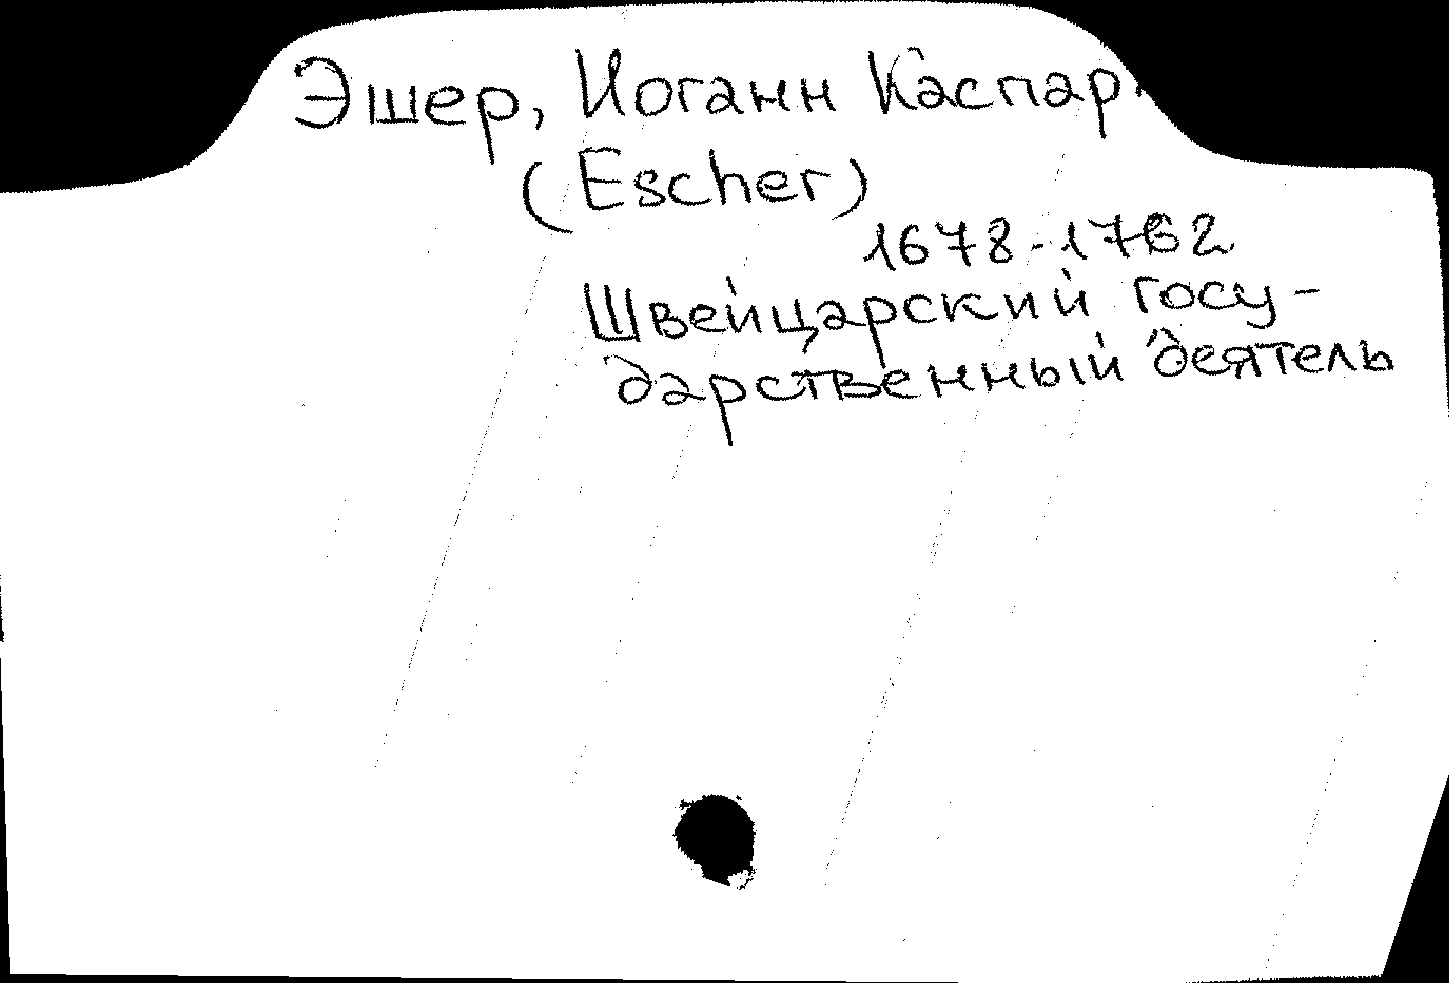 Эшер, Иоганн Каспар.
(Escher)
1678-1762
Швейцарский госу-
дарственный деятель